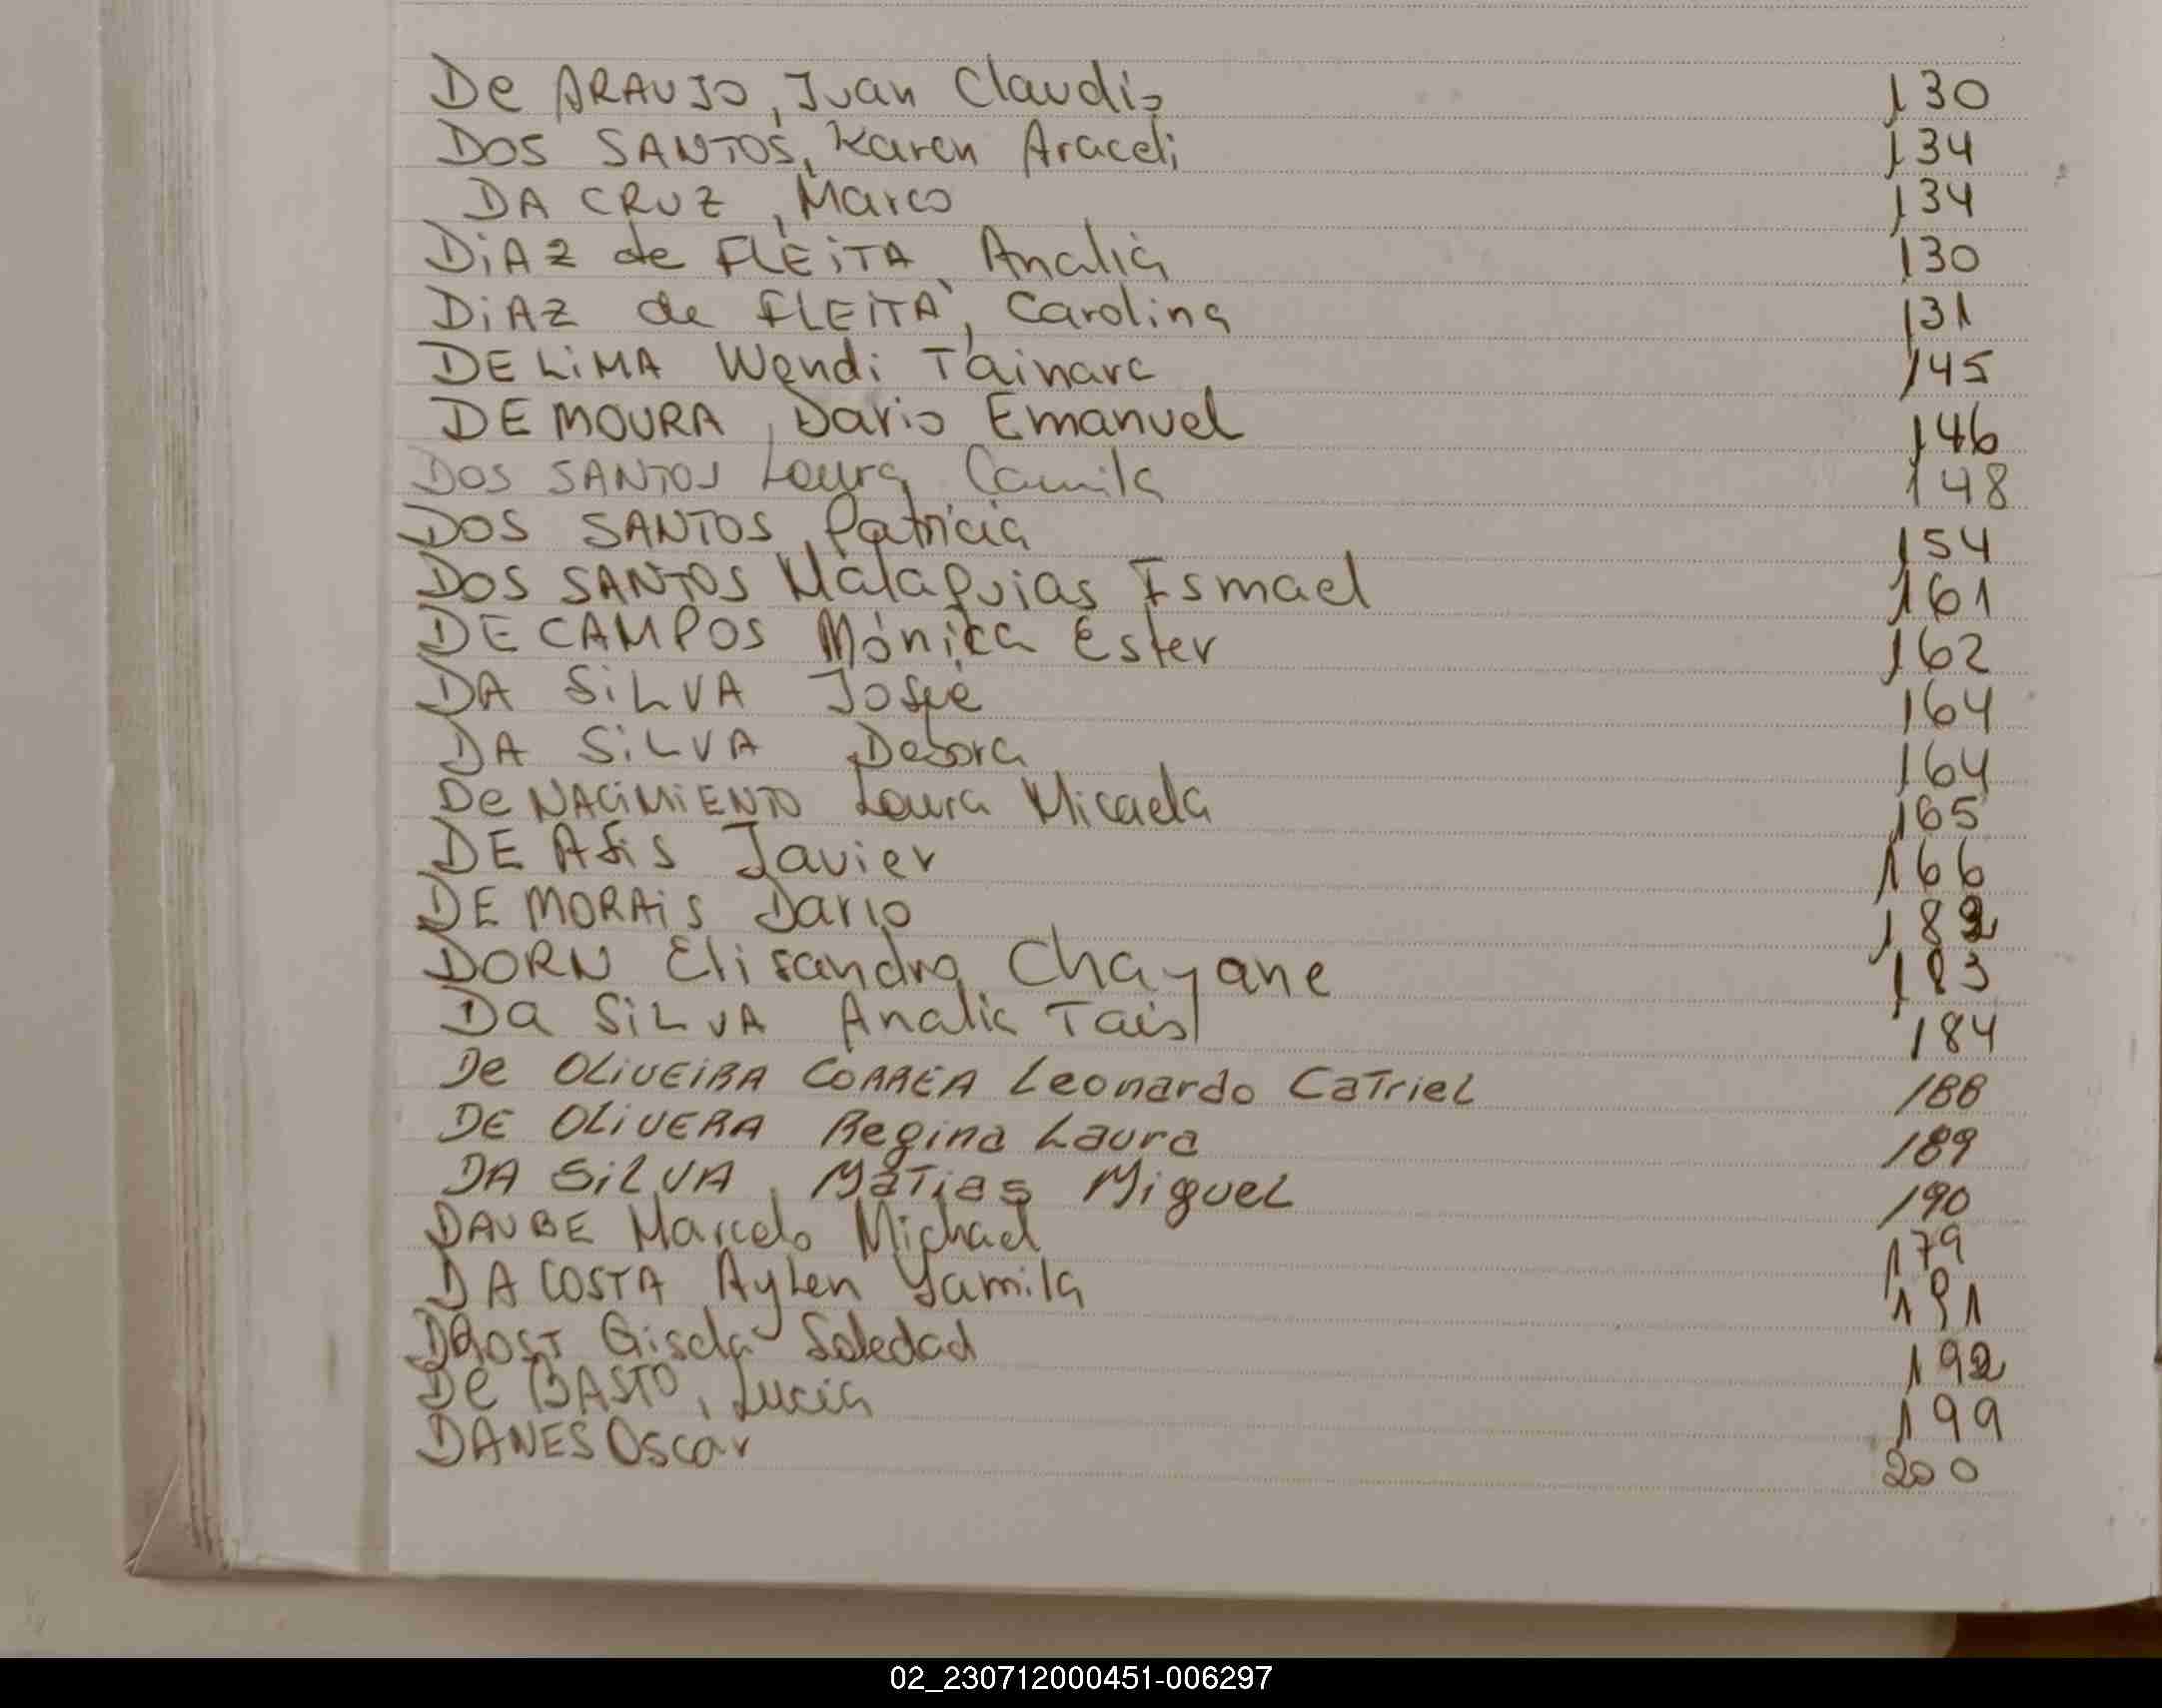 De ARAUJO, Juan Claudio 130
DOS SANTOS, Karen Araceli 134
DA CRUZ, Marco 134
DiAZ de FLEiTA, Analia 130
DiAZ de FLEiTA, Carolina 131
DE LiMA Wendi Tainara 145
DE MOURA, Dario Emanuel 146
DOS SANTOS Laura Camila 148
DOS SANTOS, Patricia 154
DOS SANTOS Malaquias Ismael 161
DE CAMPOS Mónica Ester 162
DA SiLVA Josué 164
DA SiLVA Debora 164
De NACiMiENTO Laura Micaela 165
DE ASiS Javier 166
DE MORAiS Dario 182
DORN Elisandra Chayane 183
Da SiLVA Analia Tais 184
De OLiVEiRA CORREA Leonardo CaTrieL 188
DE OLiVERA Regina Laura 189
DA SiLVA, MaTias MigueL 190
DAUBE Marcelo Michael 179
DA COSTA Aylen Yamila 191
DROST Gisela Soledad 192
De BASTO, Lucia 199
DANES Oscar 200
02_230712000451-006297